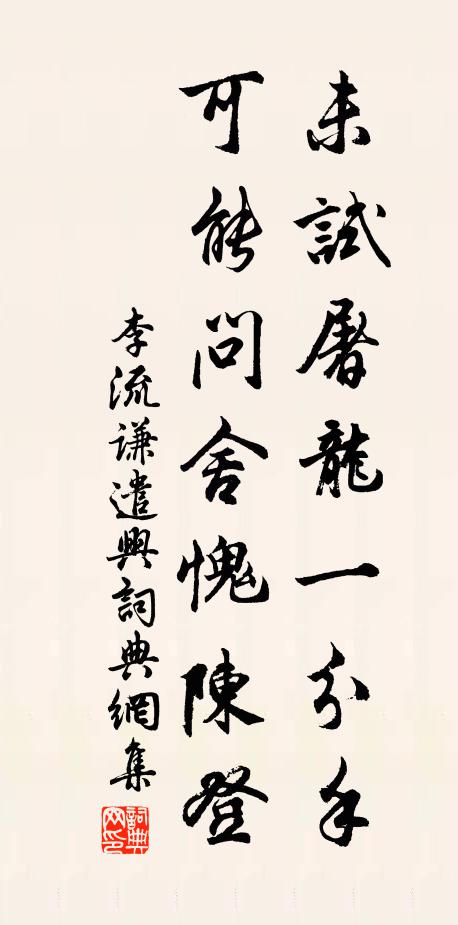 未試屠龍一分手
可能問舍愧陳登
李流謙遣興詞典網集
詞典網印